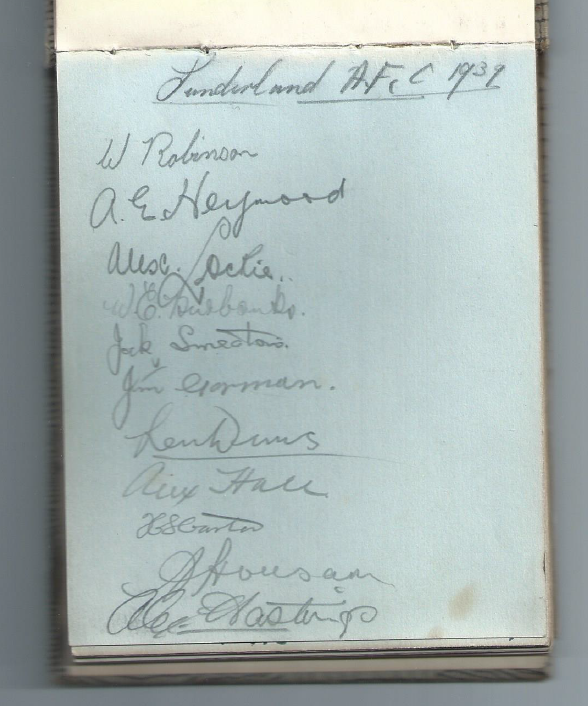 Sunderland A.F.C 1939
W Robinson
A. E. Heywood
Alex. Lockie..
W.E. Burbanks.
Jack Smeaton.
Jim Gorman.
Len Duns
Alex Hall
H S Carter
A Housam
Alex Hastings